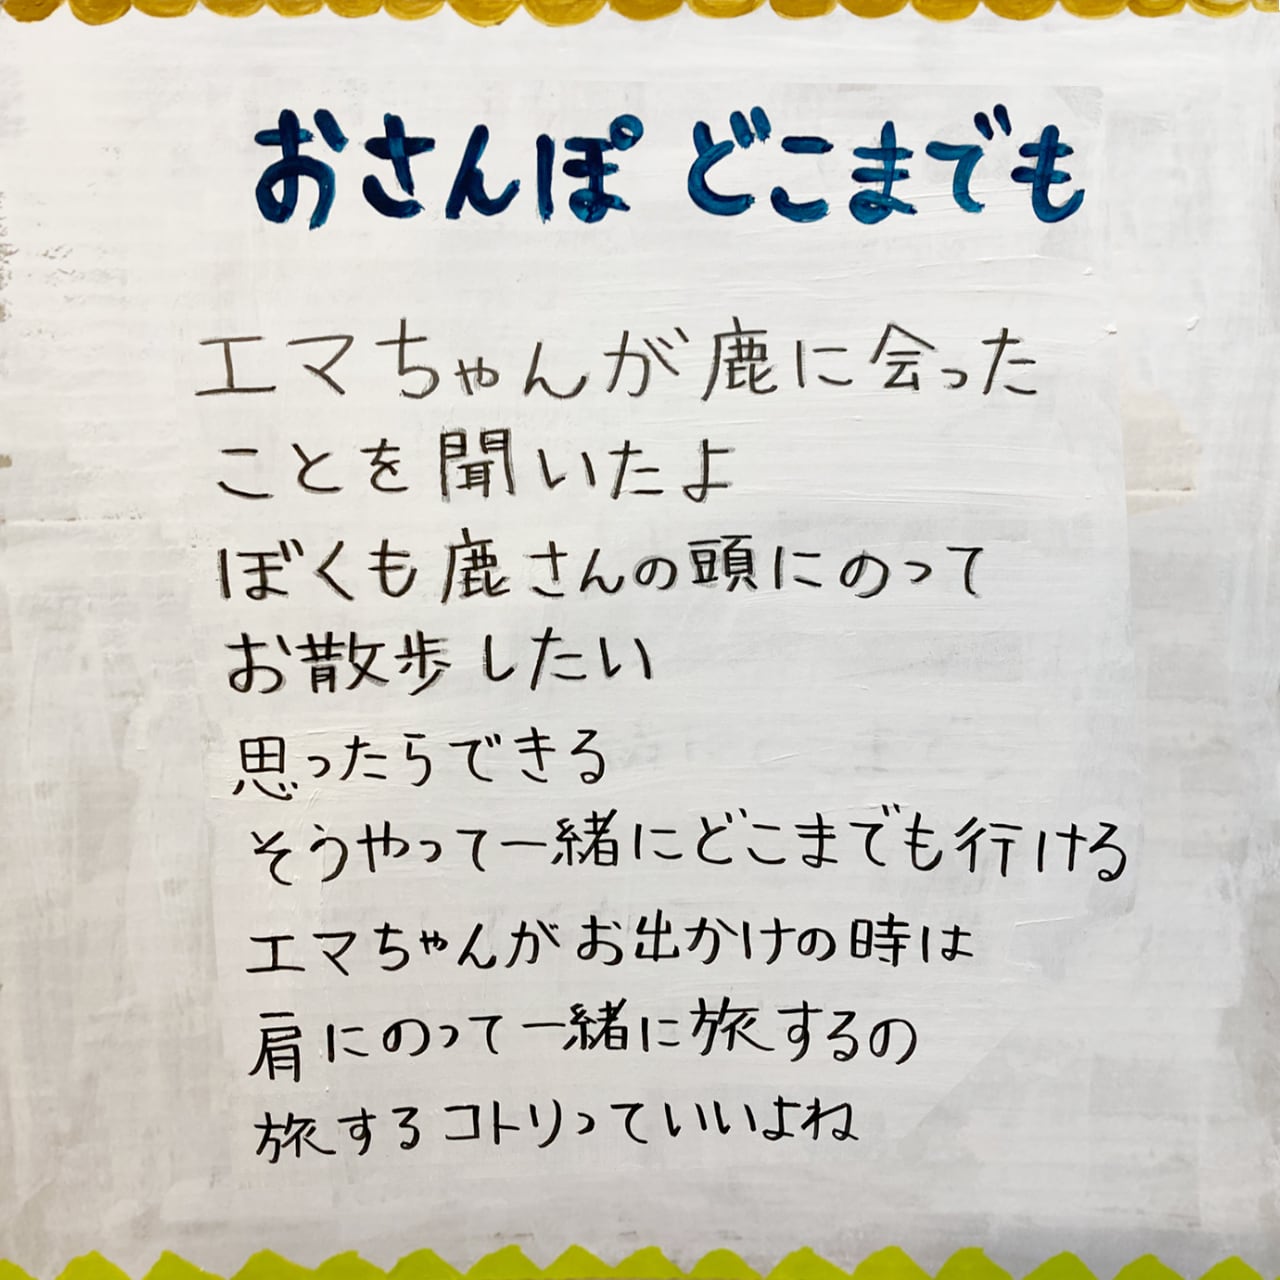 おさんぽ どこまでも
エマちゃんが鹿に会った
ことを聞いたよ
ぼくも鹿さんの頭にのって
お散歩したい
思ったらできる
そうやって一緒にどこまでも行ける
エマちゃんがお出かけの時は
肩にのって一緒に旅するの
旅するコトリっていいよね